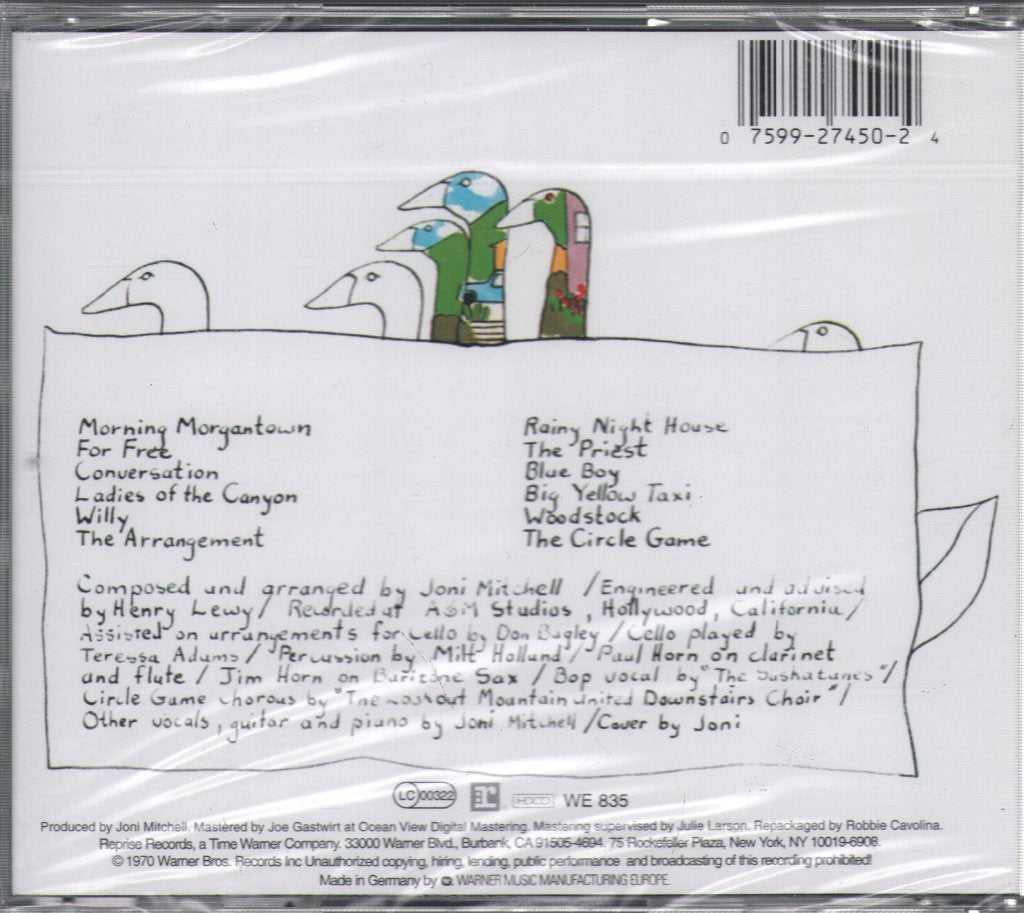 0 7599-27450-2 4
Morning Morgantown
For Free
Conversation
Ladies of the Canyon
Willy
The Arrangement
Rainy Night House
The Priest
Blue Boy
Big Yellow Taxi
Woodstock
The Circle Game
Composed and arranged by Joni Mitchell / Engineered and advised
by Henry Lewy / Recorded at A&M Studios, Hollywood, California /
Assisted on arrangements for Cello by Don Bagley / Cello played by
Teressa Adams / Percussion by Milt Holland / Paul Horn on clarinet
and flute / Jim Horn on Baritone Sax / Bop vocal by "The Saskatunes" /
Circle Game chorous by "The Lookout Mountain United Downstairs Choir" /
Other vocals, guitar and piano by Joni Mitchell / Cover by Joni
LC 00322 HDCD WE 835
Produced by Joni Mitchell. Mastered by Joe Gastwirt at Ocean View Digital Mastering. Mastering supervised by Julie Larson. Repackaged by Robbie Cavolina.
Reprise Records, a Time Warner Company. 33000 Warner Blvd., Burbank, CA 91505-4694. 75 Rockefeller Plaza, New York, NY 10019-6908.
© 1970 Warner Bros. Records Inc Unauthorized copying, hiring, lending, public performance and broadcasting of this recording prohibited!
Made in Germany by WARNER MUSIC MANUFACTURING EUROPE